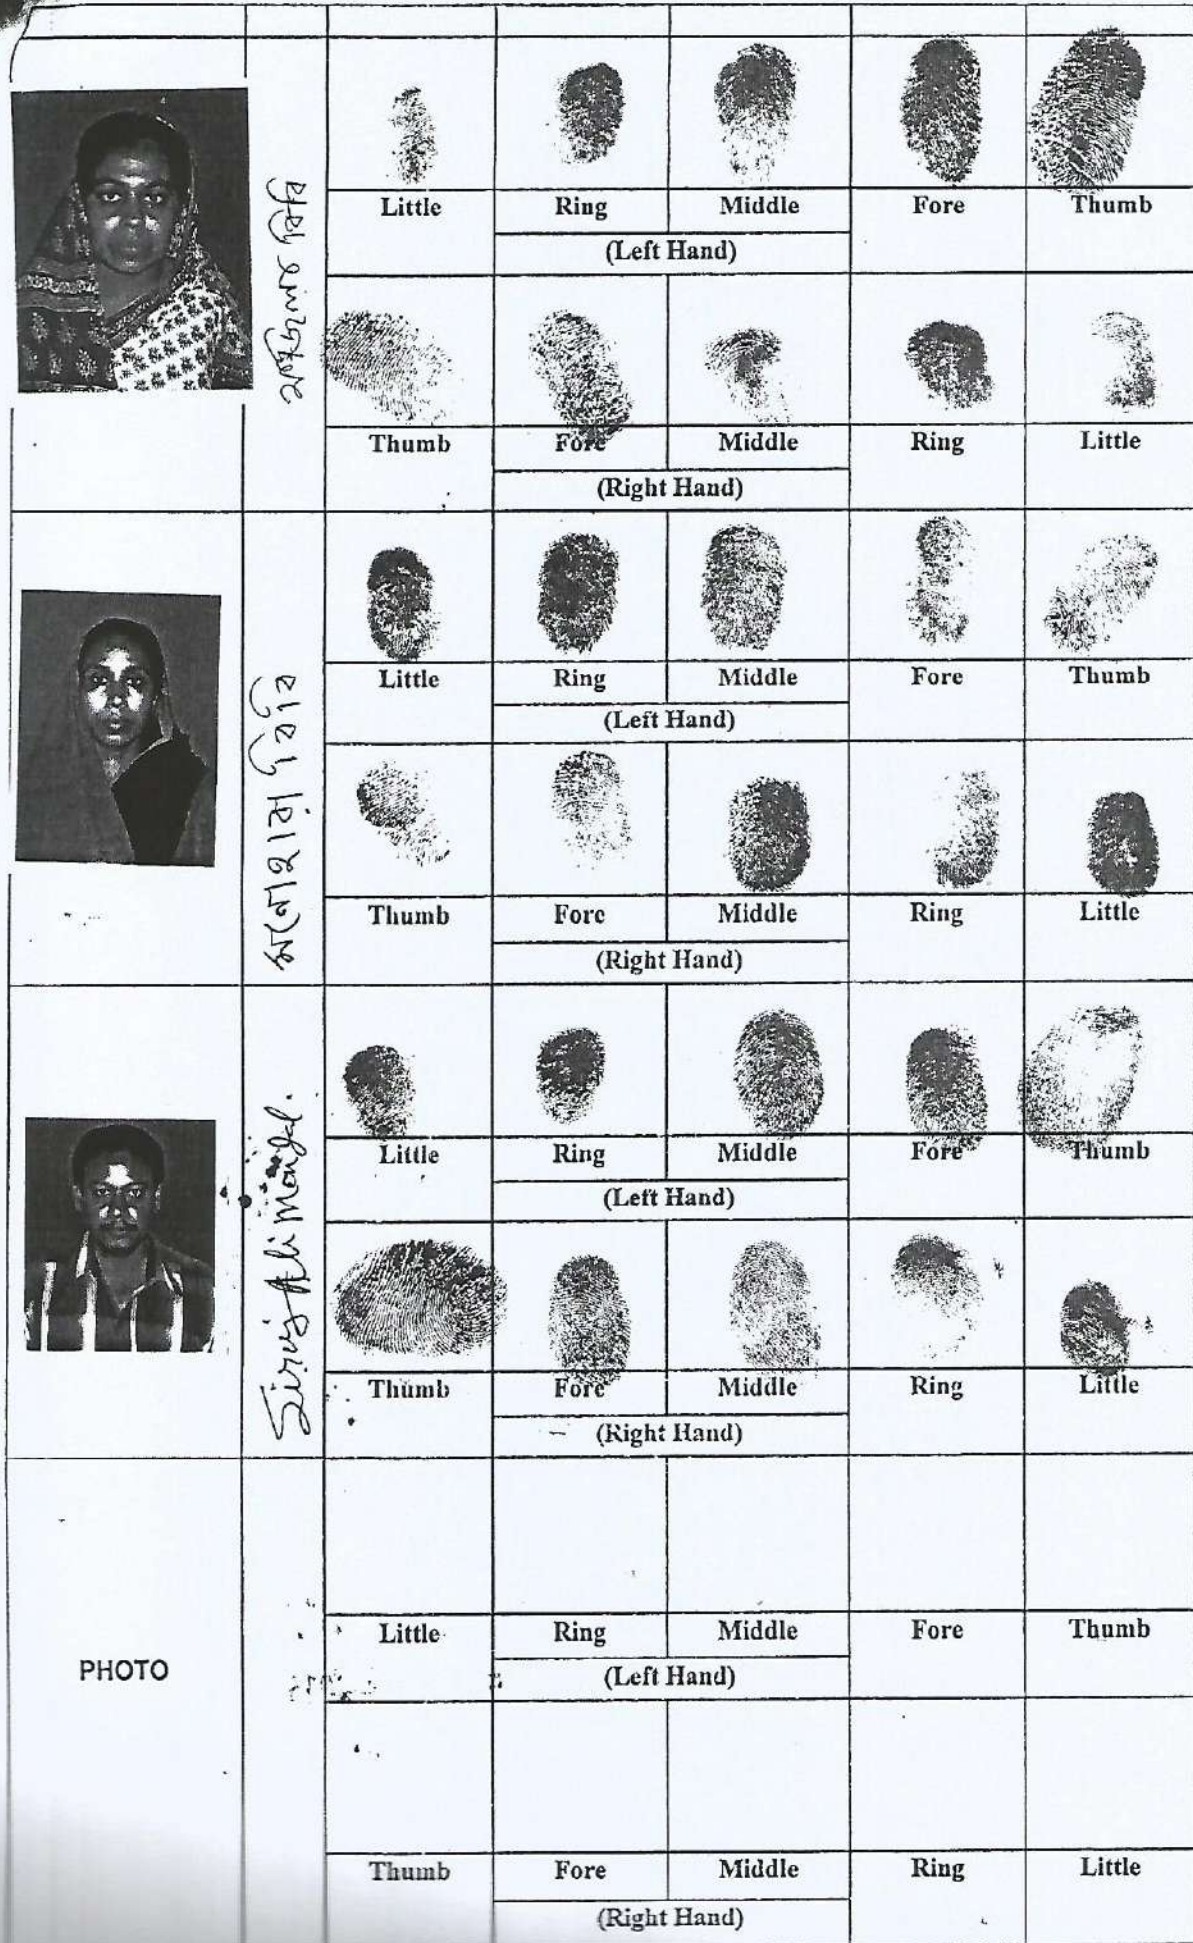 Little Ring Middle Fore Thumb
(Left Hand)
Thumb Fore Middle Ring Little
(Right Hand)
Little Ring Middle Fore Thumb
(Left Hand)
Thumb Fore Middle Ring Little
(Right Hand)
Siraj Ali Mondal.
Little Ring Middle Fore Thumb
(Left Hand)
Thumb Fore Middle Ring Little
(Right Hand)
PHOTO
Little Ring Middle Fore Thumb
(Left Hand)
Thumb Fore Middle Ring Little
(Right Hand)